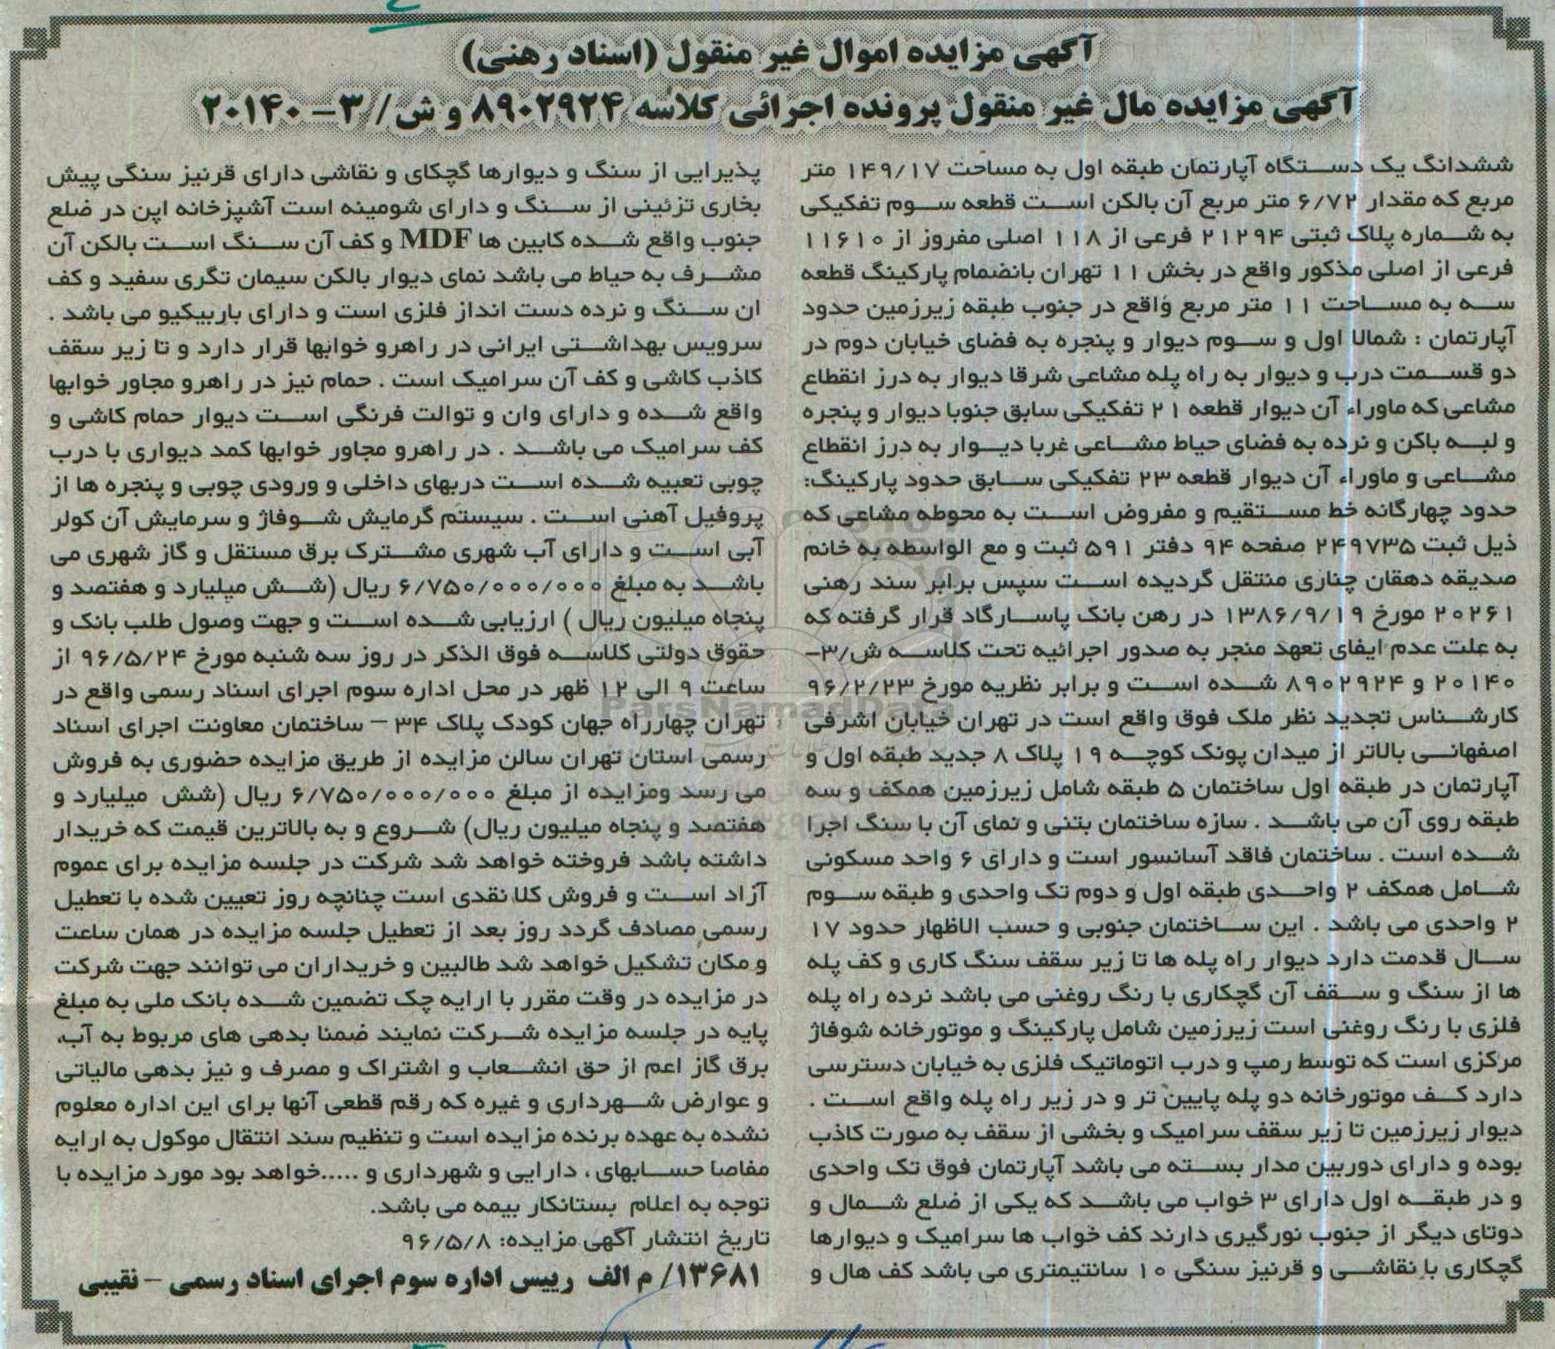 آگهی مزایده اموال غیر منقول (اسناد رهنی)
آگهی مزایده مال غیر منقول پرونده اجرائی کلاسه ۸۹۰۲۹۲۴ و ش/۳- ۲۰۱۴۰
ششدانگ یک دستگاه آپارتمان طبقه اول به مساحت ۱۴۹/۱۷ متر
مربع که مقدار ۶/۷۲ متر مربع آن بالکن است قطعه سوم تفکیکی
به شماره پلاک ثبتی ۲۱۲۹۴ فرعی از ۱۱۸ اصلی مفروز از ۱۱۶۱۰
فرعی از اصلی مذکور واقع در بخش ۱۱ تهران بانضمام پارکینگ قطعه
سه به مساحت ۱۱ متر مربع واقع در جنوب طبقه زیرزمین حدود
آپارتمان : شمالا اول و سوم دیوار و پنجره به فضای خیابان دوم در
دو قسمت درب و دیوار به راه پله مشاعی شرقا دیوار به درز انقطاع
مشاعی که ماوراء آن دیوار قطعه ۲۱ تفکیکی سابق جنوبا دیوار و پنجره
و لبه باکن و نرده به فضای حیاط مشاعی غربا دیوار به درز انقطاع
مشاعی و ماوراء آن دیوار قطعه ۲۳ تفکیکی سابق حدود پارکینگ:
حدود چهارگانه خط مستقیم و مفروض است به محوطه مشاعی که
ذیل ثبت ۲۴۹۷۳۵ صفحه ۹۴ دفتر ۵۹۱ ثبت و مع الواسطه به خانم
صدیقه دهقان چناری منتقل گردیده است سپس برابر سند رهنی
۲۰۲۶۱ مورخ ۱۳۸۶/۹/۱۹ در رهن بانک پاسارگاد قرار گرفته که
به علت عدم ایفای تعهد منجر به صدور اجرائیه تحت کلاسه ش/۳-
۲۰۱۴۰ و ۸۹۰۲۹۲۴ شده است و برابر نظریه مورخ ۹۶/۲/۲۳
کارشناس تجدید نظر ملک فوق واقع است در تهران خیابان اشرفی
اصفهانی بالاتر از میدان پونک کوچه ۱۹ پلاک ۸ جدید طبقه اول و
آپارتمان در طبقه اول ساختمان ۵ طبقه شامل زیرزمین همکف و سه
طبقه روی آن می باشد . سازه ساختمان بتنی و نمای آن با سنگ اجرا
شده است . ساختمان فاقد آسانسور است و دارای ۶ واحد مسکونی
شامل همکف ۲ واحدی طبقه اول و دوم تک واحدی و طبقه سوم
۲ واحدی می باشد . این ساختمان جنوبی و حسب الاظهار حدود ۱۷
سال قدمت دارد دیوار راه پله ها تا زیر سقف سنگ کاری و کف پله
ها از سنگ و سقف آن گچکاری با رنگ روغنی می باشد نرده راه پله
فلزی با رنگ روغنی است زیرزمین شامل پارکینگ و موتورخانه شوفاژ
مرکزی است که توسط رمپ و درب اتوماتیک فلزی به خیابان دسترسی
دارد کف موتورخانه دو پله پایین تر و در زیر راه پله واقع است .
دیوار زیرزمین تا زیر سقف سرامیک و بخشی از سقف به صورت کاذب
بوده و دارای دوربین مدار بسته می باشد آپارتمان فوق تک واحدی
و در طبقه اول دارای ۳ خواب می باشد که یکی از ضلع شمال و
دوتای دیگر از جنوب نورگیری دارند کف خواب ها سرامیک و دیوارها
گچکاری با نقاشی و قرنیز سنگی ۱۰ سانتیمتری می باشد کف هال و
پذیرایی از سنگ و دیوارها گچکای و نقاشی دارای قرنیز سنگی پیش
بخاری تزئینی از سنگ و دارای شومینه است آشپزخانه اپن در ضلع
جنوب واقع شده کابین ها MDF و کف آن سنگ است بالکن آن
مشرف به حیاط می باشد نمای دیوار بالکن سیمان تگری سفید و کف
ان سنگ و نرده دست انداز فلزی است و دارای باربیکیو می باشد .
سرویس بهداشتی ایرانی در راهرو خوابها قرار دارد و تا زیر سقف
کاذب کاشی و کف آن سرامیک است . حمام نیز در راهرو مجاور خوابها
واقع شده و دارای وان و توالت فرنگی است دیوار حمام کاشی و
کف سرامیک می باشد . در راهرو مجاور خوابها کمد دیواری با درب
چوبی تعبیه شده است دربهای داخلی و ورودی چوبی و پنجره ها از
پروفیل آهنی است . سیستم گرمایش شوفاژ و سرمایش آن کولر
آبی است و دارای آب شهری مشترک برق مستقل و گاز شهری می
باشد به مبلغ ۶/۷۵۰/۰۰۰/۰۰۰ ریال (شش میلیارد و هفتصد و
پنجاه میلیون ریال ) ارزیابی شده است و جهت وصول طلب بانک و
حقوق دولتی کلاسه فوق الذکر در روز سه شنبه مورخ ۹۶/۵/۲۴ از
ساعت ۹ الی ۱۲ ظهر در محل اداره سوم اجرای اسناد رسمی واقع در
تهران چهارراه جهان کودک پلاک ۳۴ – ساختمان معاونت اجرای اسناد
رسمی استان تهران سالن مزایده از طریق مزایده حضوری به فروش
می رسد ومزایده از مبلغ ۶/۷۵۰/۰۰۰/۰۰۰ ریال (شش میلیارد و
هفتصد و پنجاه میلیون ریال) شروع و به بالاترین قیمت که خریدار
داشته باشد فروخته خواهد شد شرکت در جلسه مزایده برای عموم
آزاد است و فروش کلا نقدی است چنانچه روز تعیین شده با تعطیل
رسمی مصادف گردد روز بعد از تعطیل جلسه مزایده در همان ساعت
و مکان تشکیل خواهد شد طالبین و خریداران می توانند جهت شرکت
در مزایده در وقت مقرر با ارایه چک تضمین شده بانک ملی به مبلغ
پایه در جلسه مزایده شرکت نمایند ضمنا بدهی های مربوط به آب،
برق گاز اعم از حق انشعاب و اشتراک و مصرف و نیز بدهی مالیاتی
و عوارض شهرداری و غیره که رقم قطعی آنها برای این اداره معلوم
نشده به عهده برنده مزایده است و تنظیم سند انتقال موکول به ارایه
مفاصا حسابهای ، دارایی و شهرداری و .....خواهد بود مورد مزایده با
توجه به اعلام بستانکار بیمه می باشد.
تاریخ انتشار آگهی مزایده: ۹۶/۵/۸
۱۳۶۸۱/ م الف رییس اداره سوم اجرای اسناد رسمی – نقیبی
ParsNamadData